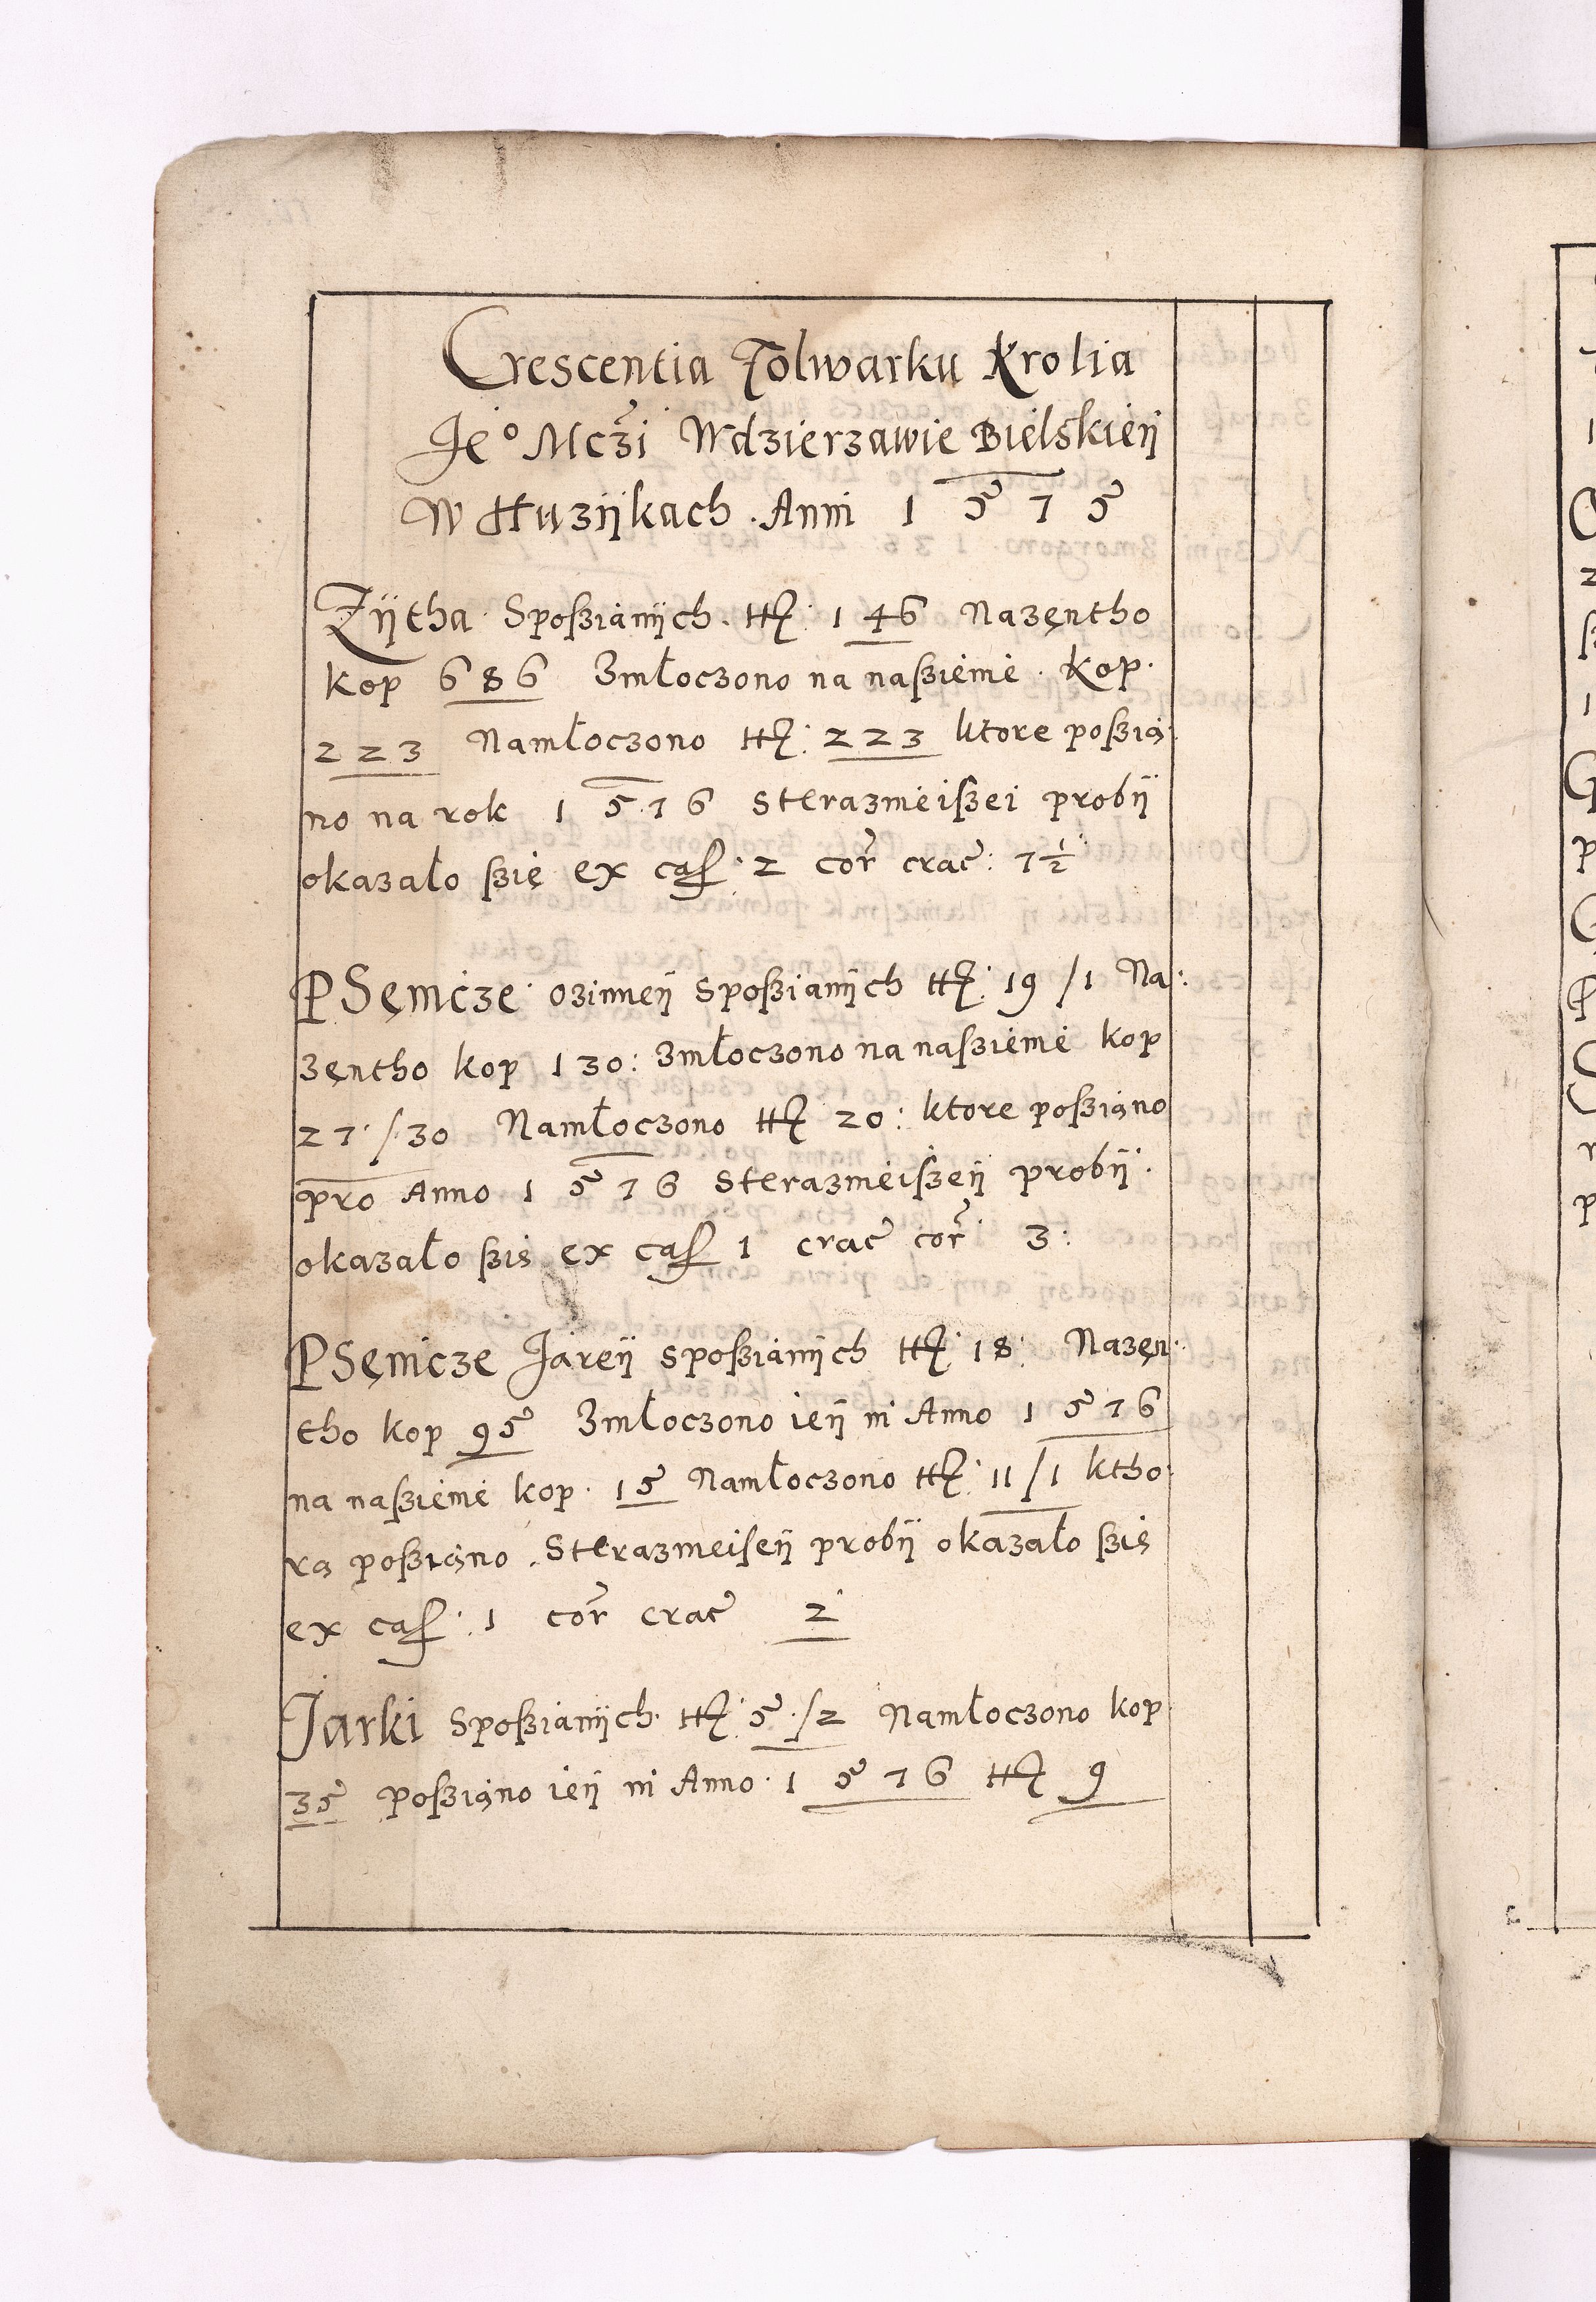 Crescentia Folwarku Krolia
Je° Mczi Wdzierzawie Bielskieÿ
W Huzÿkach. Anni 1575
Zÿtha Spoßianÿch. tt: 146 Nazentho
kop 686 Zmłoczono na naßieme. kop.
223 Namłoczono tt: 223 ktore poßią:
no na rok 1576 Sterazmeißei probÿ
okazało ßię ex caß: 2 cor crac: 7½
PSęnicze ozimneÿ Spoßianÿch tt: 19/1 Na:
zęntho kop 130: Zmłoczono na naßieme kop
27/30 Namłoczono tt 20: ktore poßiąno
pro Anno 1576 Sterazmeißeÿ probÿ.
okazało ßią ex caß 1 crac cor 3:
PSęnicze Jareÿ Spoßianÿch tt: 18: Nazęn:
tho kop 95 Zmłoczono ieÿ in Anno 1576
na naßieme kop. 15 Namłoczono tt: 11/1 ktho:
rą poßiąno. Sterazmeiseÿ probÿ okazało ßią
ex caß: 1 cor crac 2
Jarki Spoßianÿch. tt: 5/2 Namłoczono kop
35 poßiąno ieÿ in Anno. 1576 tt 9